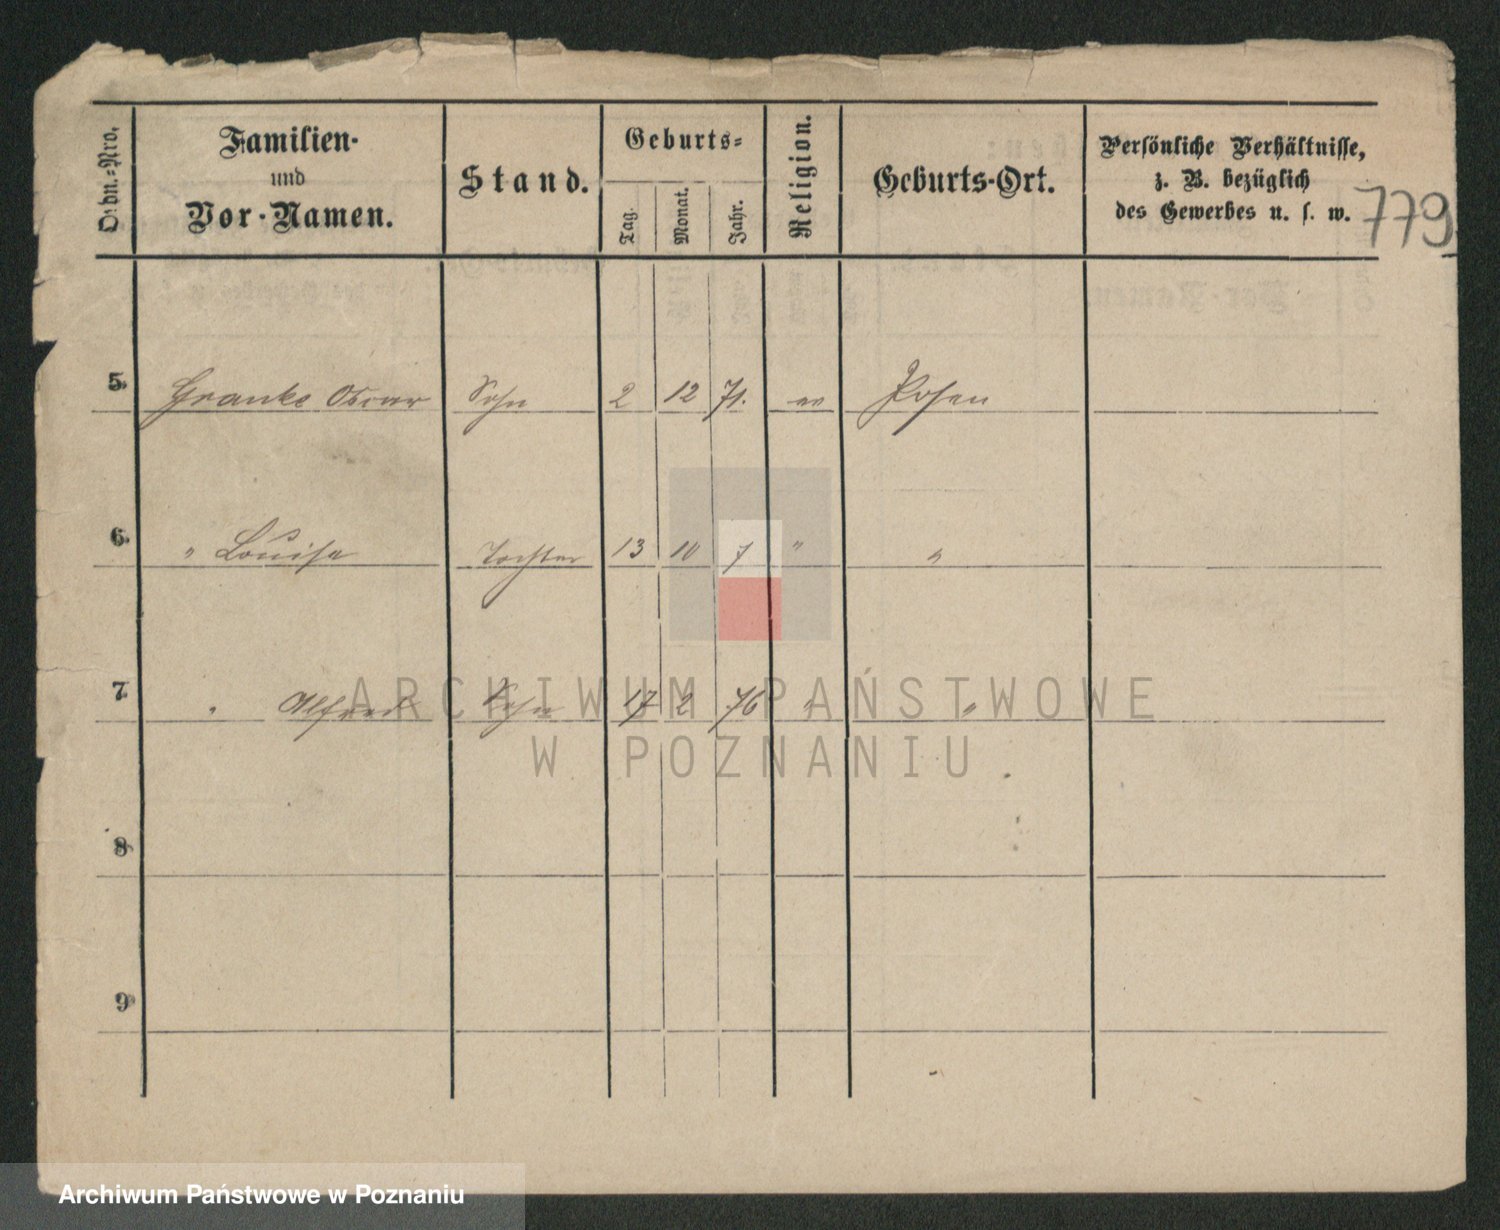 Ordn.-Nro.
Familien-
und
Vor-Namen.
Stand.
Geburts-
Tag.
Monat.
Jahr.
Religion.
Geburts-Ort.
Persönliche Verhältnisse,
z. B. bezüglich
des Gewerbes u. s. w.
779
5. Franke Oscar Sohn 2 12 71. ev Posen
6. " Louise Tochter 13 10 7 " "
7 " Alfred Sohn 17 2 76 " "
8
9
ARCHIWUM PAŃSTWOWE
W POZNANIU
Archiwum Państwowe w Poznaniu